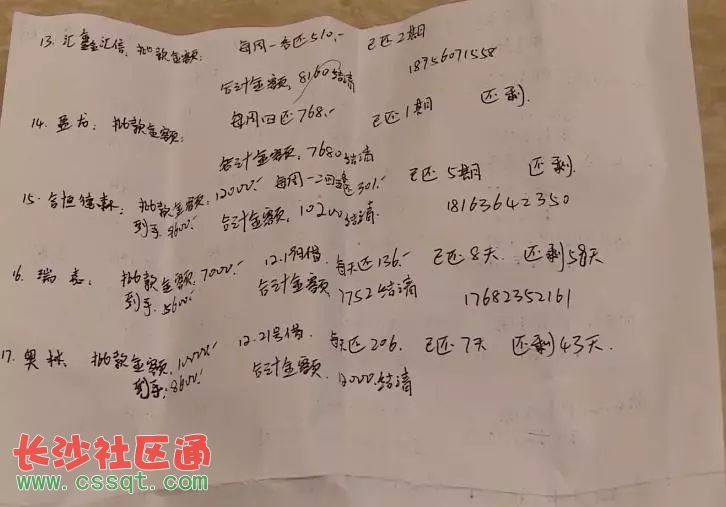 13. 汇鑫汇信: 批款金额: 每周一还510.- 已还2期
合计金额, 8160结清 18756071558
14. 批款金额: 每周四还768.- 已还1期 还剩.
合计金额, 7680结清
15. 合恒 批款金额: 12000.- 每周一 301.- 已还5期 还剩.
到手: 9600.- 合计金额, 10200结清. 18163642350
16. 瑞 批款金额, 7000.- 12.19借 每天还136.- 已还8天. 还剩58天
到手: 5600.- 合计金额, 7752结清 17682352161
17. 奥林 批款金额, 12.21号借. 每天还206. 已还7天 还剩43天.
到手: 8600.- 合计金额, 结清
长沙社区通
www.cssqt.com